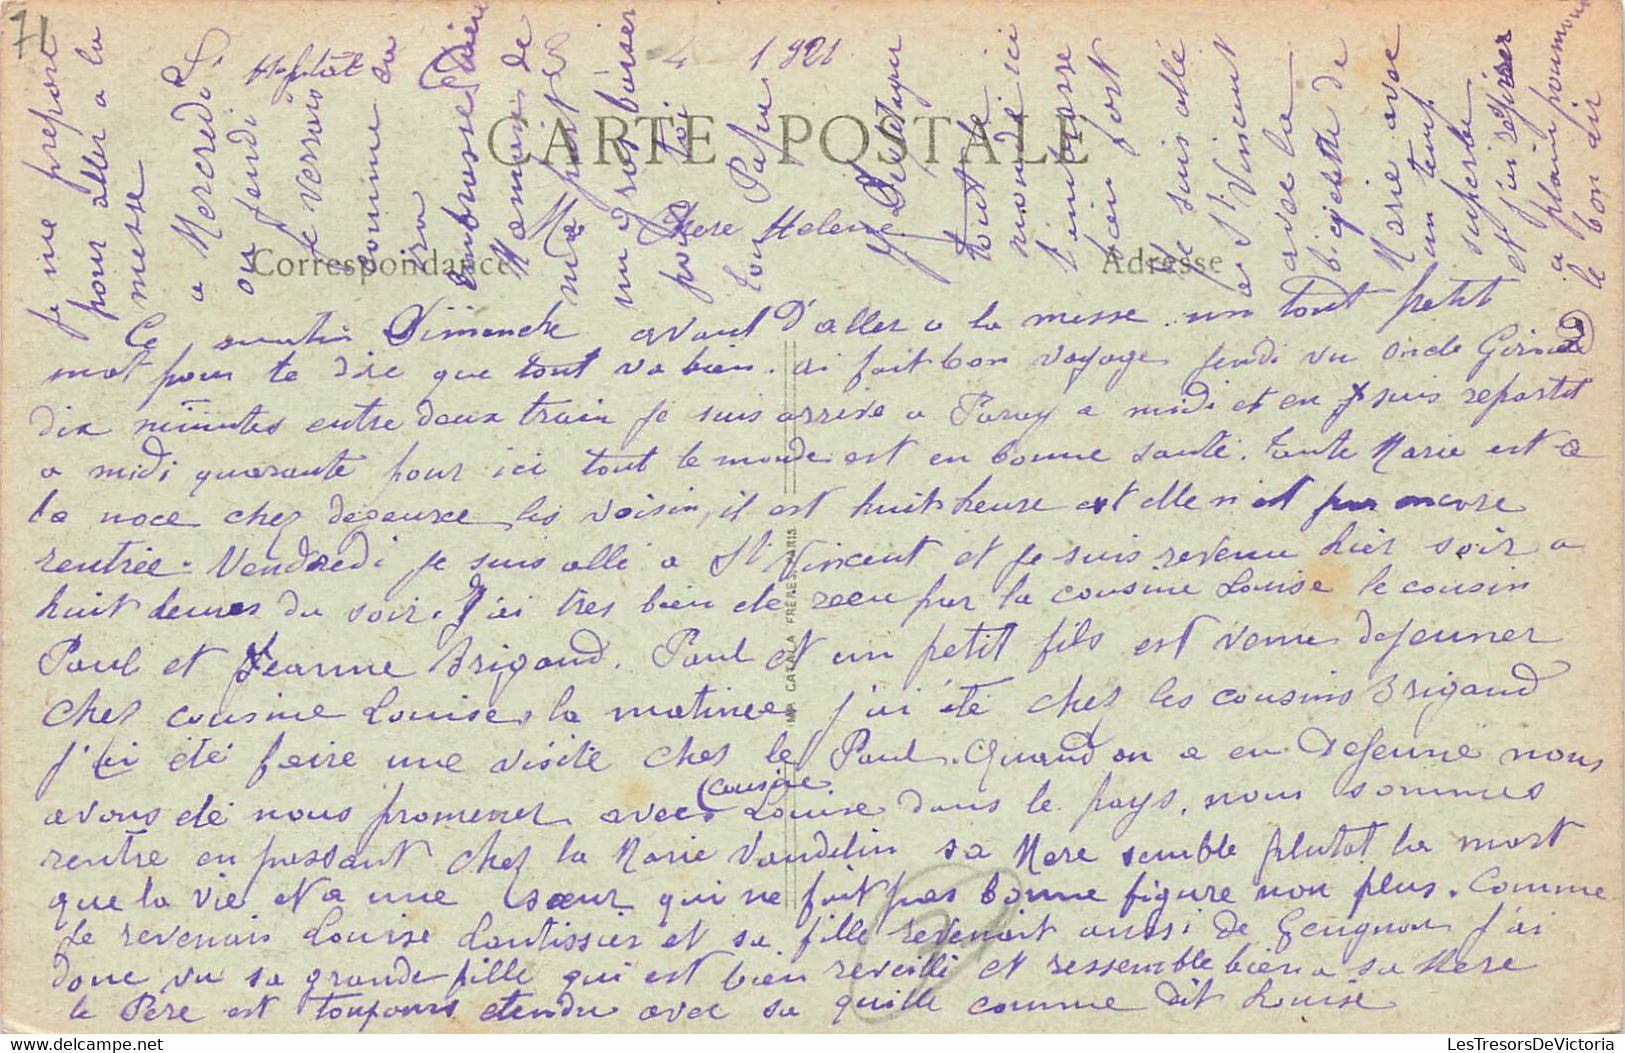 71
4 1921
CARTE POSTALE
Chere Helene
Correspondance
Adresse
Ce matin Dimanche avant d'aller a la messe un tout petit
mot pour te dire que tout va bien. ai fait bon voyage Jeudi vu oncle
dix minutes entre deux train je suis arrive a Paray a midi et en suis repartit
a midi quarante pour ici tout le monde est en bonne santé. tante Marie est a
la noce chez les voisin, il est huit heure et elle n'est pas encore
rentrée. Vendredi je suis allé a St Vincent et je suis revenu hier soir a
huit heures du soir. J'ai tres bien ete recu par la cousine Louise le cousin
Paul et Jeanne Brigaud. Paul et un petit fils est venu dejeuner
chez cousine Louise, la matinee j'ai été chez les cousins Brigaud
j'ai été faire une visite chez le Paul. Quand on a eu dejeuné nous
avons eté nous promener avec (cousine
Louise dans le pays, nous sommes
rentre en passant chez la Marie Vaudelin sa Mere semble plutot la mort
que la vie et a une sœur qui ne fait pas bonne figure non plus. Comme
je revenais Louise Lautissier et sa fille revenait aussi de Geugnon j'ai
donc vu sa grande fille qui est bien reveillé et ressemble bien a sa Mere
le Pere est toujours etendu avec sa quille comme dit Louise
je me prepare
pour aller a la
messe
a Mercredi
ou Jeudi
te verrons
comme ca
ira
embrasse
Maman de
Ma part
un gros baiser
pour toi
ton Papa
tout le
monde ici
t'embrasse
bien fort
Je suis allé
a St Vincent
avec la
bicyclette de
Marie avec
un temps
superbe
et j'ai respirer
a plein poumons
le bon air
IMP. CATALA FRERES. PARIS
LesTresorsDeVictoria